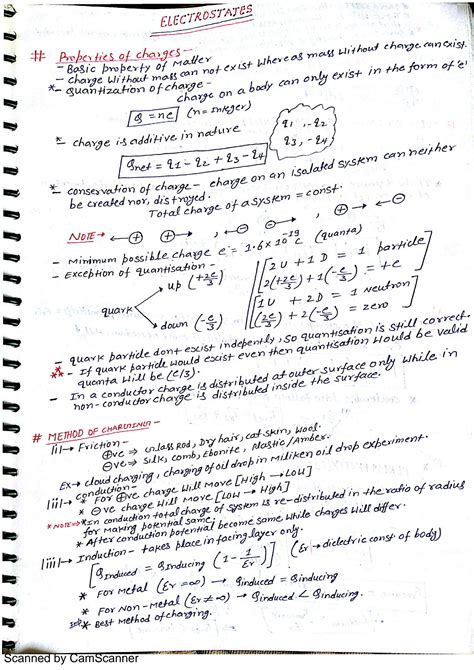 ELECTROSTATES
# Properties of charges -
- Basic property of Matter
- Charge without mass can not exist whereas mass without charge can exist.
*- Quantization of charge -
charge on a body can only exist in the form of 'e'
Q = ne (n = Integer)
q1, -q2
q3, -q4
*- charge is additive in nature
Qnet = q1 - q2 + q3 - q4
*- conservation of charge - charge on an isolated system can neither
be created nor, distroyed.
Total charge of a system = const.
NOTE → ← ⊕ ⊕ → , ⊖ → ← ⊖ , ⊕ → ← ⊖
- Minimum possible charge e = 1.6 x 10^-19 c (quanta)
- Exception of quantisation -
quark
up (+2e/3)
down (-e/3)
2U + 1D = 1 particle
2(+2e/3) + 1(-e/3) = +e
1U + 2D = 1 neutron
(2e/3) + 2(-e/3) = zero
- quark particle dont exist indepently, so quantisation is still correct.
**- If quark particle would exsist even then quantisation would be valid
quanta will be (e/3).
- In a conductor charge is distributed at outer surface only while in
non-conductor charge is distributed inside the surface.
# METHOD OF CHARGING -
|i|→ Friction -
⊕ve ⇒ Glass Rod, Dry hair, cat skin, Wool.
⊖ve ⇒ Silk, comb, Ebonite, Plastic/Amber.
Ex → cloud charging, charging of oil drop in Miliken oil drop experiment.
|ii|→ conduction -
* For ⊕ve charge Will Move [High → Low]
* ⊖ve charge Will Move [Low → High]
*NOTE⇒ *In conduction total charge of system is re-distributed in the ratio of radius
for making potential same.
* After conduction potential become same while charges will differ.
|iii|→ Induction - takes place in facing layer only.
Qinduced = Qinducing (1 - 1/εr) (εr → dielectric const. of body)
* For Metal (εr = ∞) → Qinduced = Qinducing
* For Non-Metal (εr ≠ ∞) → Qinduced < Qinducing.
* Best Method of charging.
Scanned by CamScanner